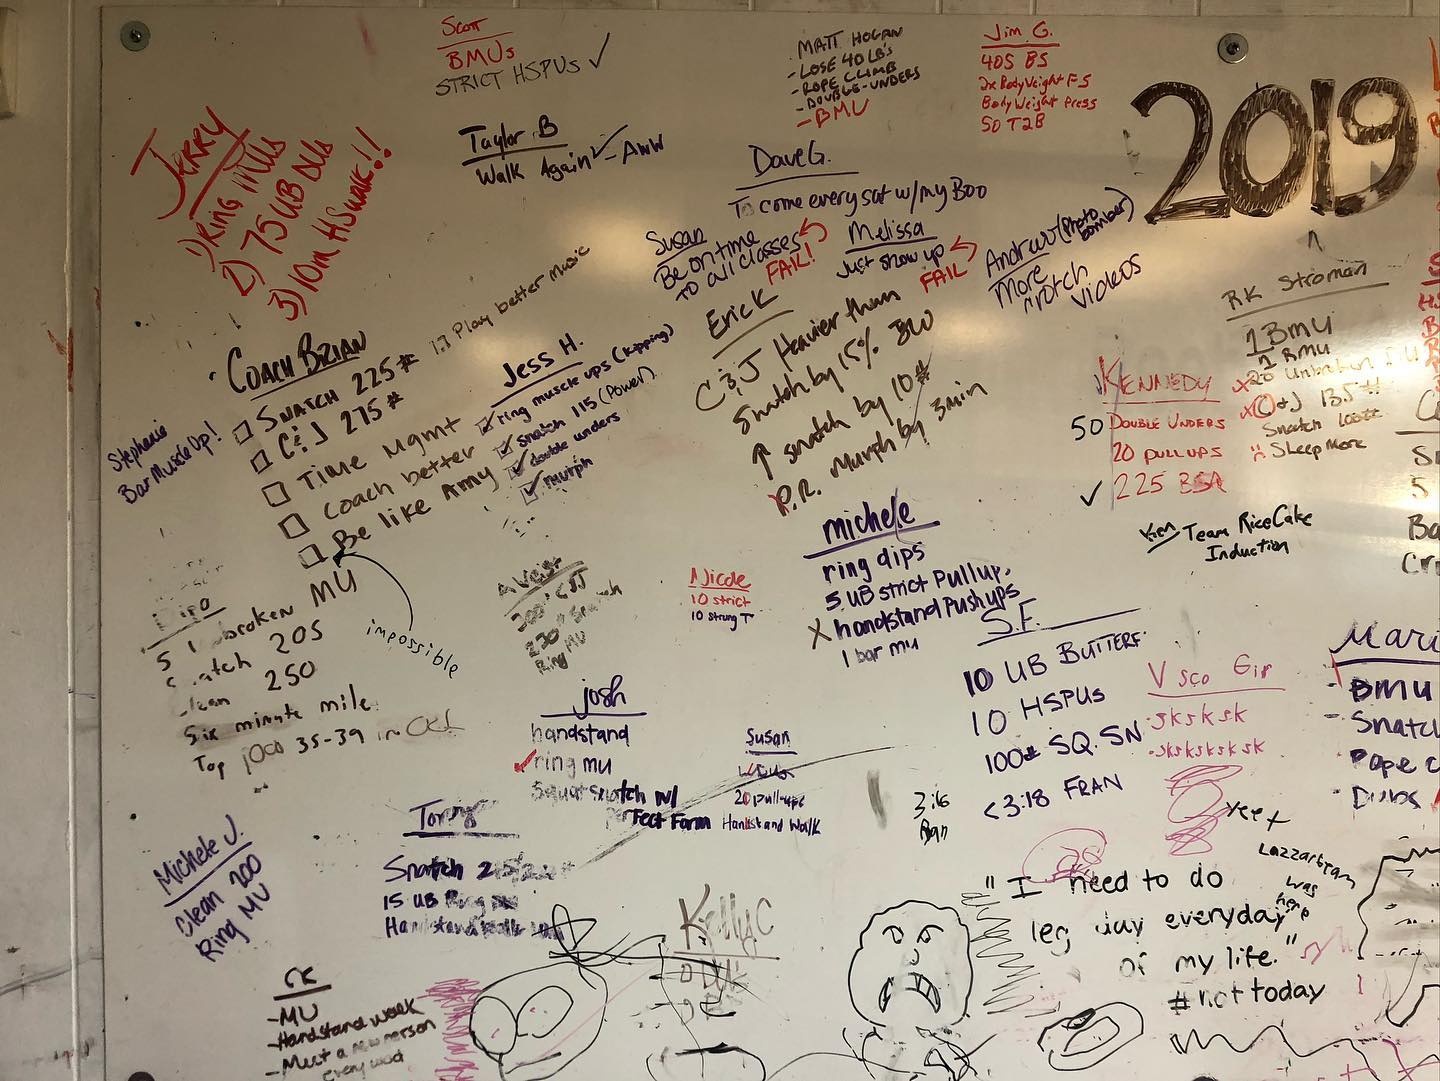 Scott
BMUs
STRICT HSPUs ✓
MATT HOGAN
- LOSE 40 LB's
- ROPE CLIMB
- DOUBLE-UNDERS
- BMU
Jim G.
405 BS
2x BodyWeight FS
BodyWeight Press
50 T2B
2019
JERRY
1) RING MUs
2) 75 UB DUs
3) 10m HSWALK!!
Taylor B
Walk Again ✓ - AWW
Dave G.
To come every sat w/ my Boo
Susan
Be on time
to all classes
FAIL!
Melissa
Just show up
FAIL
Andrew (Photo bomber)
More
crotch
Videos
COACH BRIAN
SNATCH 225#
C&J 275#
Time Mgmt
Coach better
Be like Army
impossible
Play better music
Stephanie
Bar Muscle Up!
Jess H.
ring muscle ups (kipping)
snatch 115 (Power)
double unders
murph
Eric K
C&J Heavier than
Snatch by 15% BW
↑ snatch by 10#
P.R. Murph by 3min
RK Stroman
1 BMU
1 RMU
20 Unbroken
C&J 135#
Snatch
Sleep More
KENNEDY
50 DOUBLE UNDERS
20 PULL UPS
✓ 225
Team RiceCake
Induction
michele
ring dips
5 UB strict Pullup.
X handstand Pushups
1 bar mu
Nicole
10 strict
10 strung T
MU
205
250
Six minute mile
Top 35-39 in
Ring MU
josh
handstand
✓ ring mu
Squat snatch w/
perfect Form
Susan
20 pull-ups
Handstand Walk
S.F.
10 UB BUTTERF.
10 HSPUs
100# SQ. SN
<3:18 FRAN
3:16
Vsco Girl
- sksksk
- sksksksksk
yeet
Mari
- BMU
- Snatc
- Rope c
- Dubs
Michele J.
Clean 200
Ring MU
Torey
Snatch
15 UB Ring
Handstand walk
Kelly C
Lazzarteam
was
here
"I need to do
leg day everyday
of my life."
#nottoday
CK
- MU
- Handstand walk
- Meet a new person
every wod